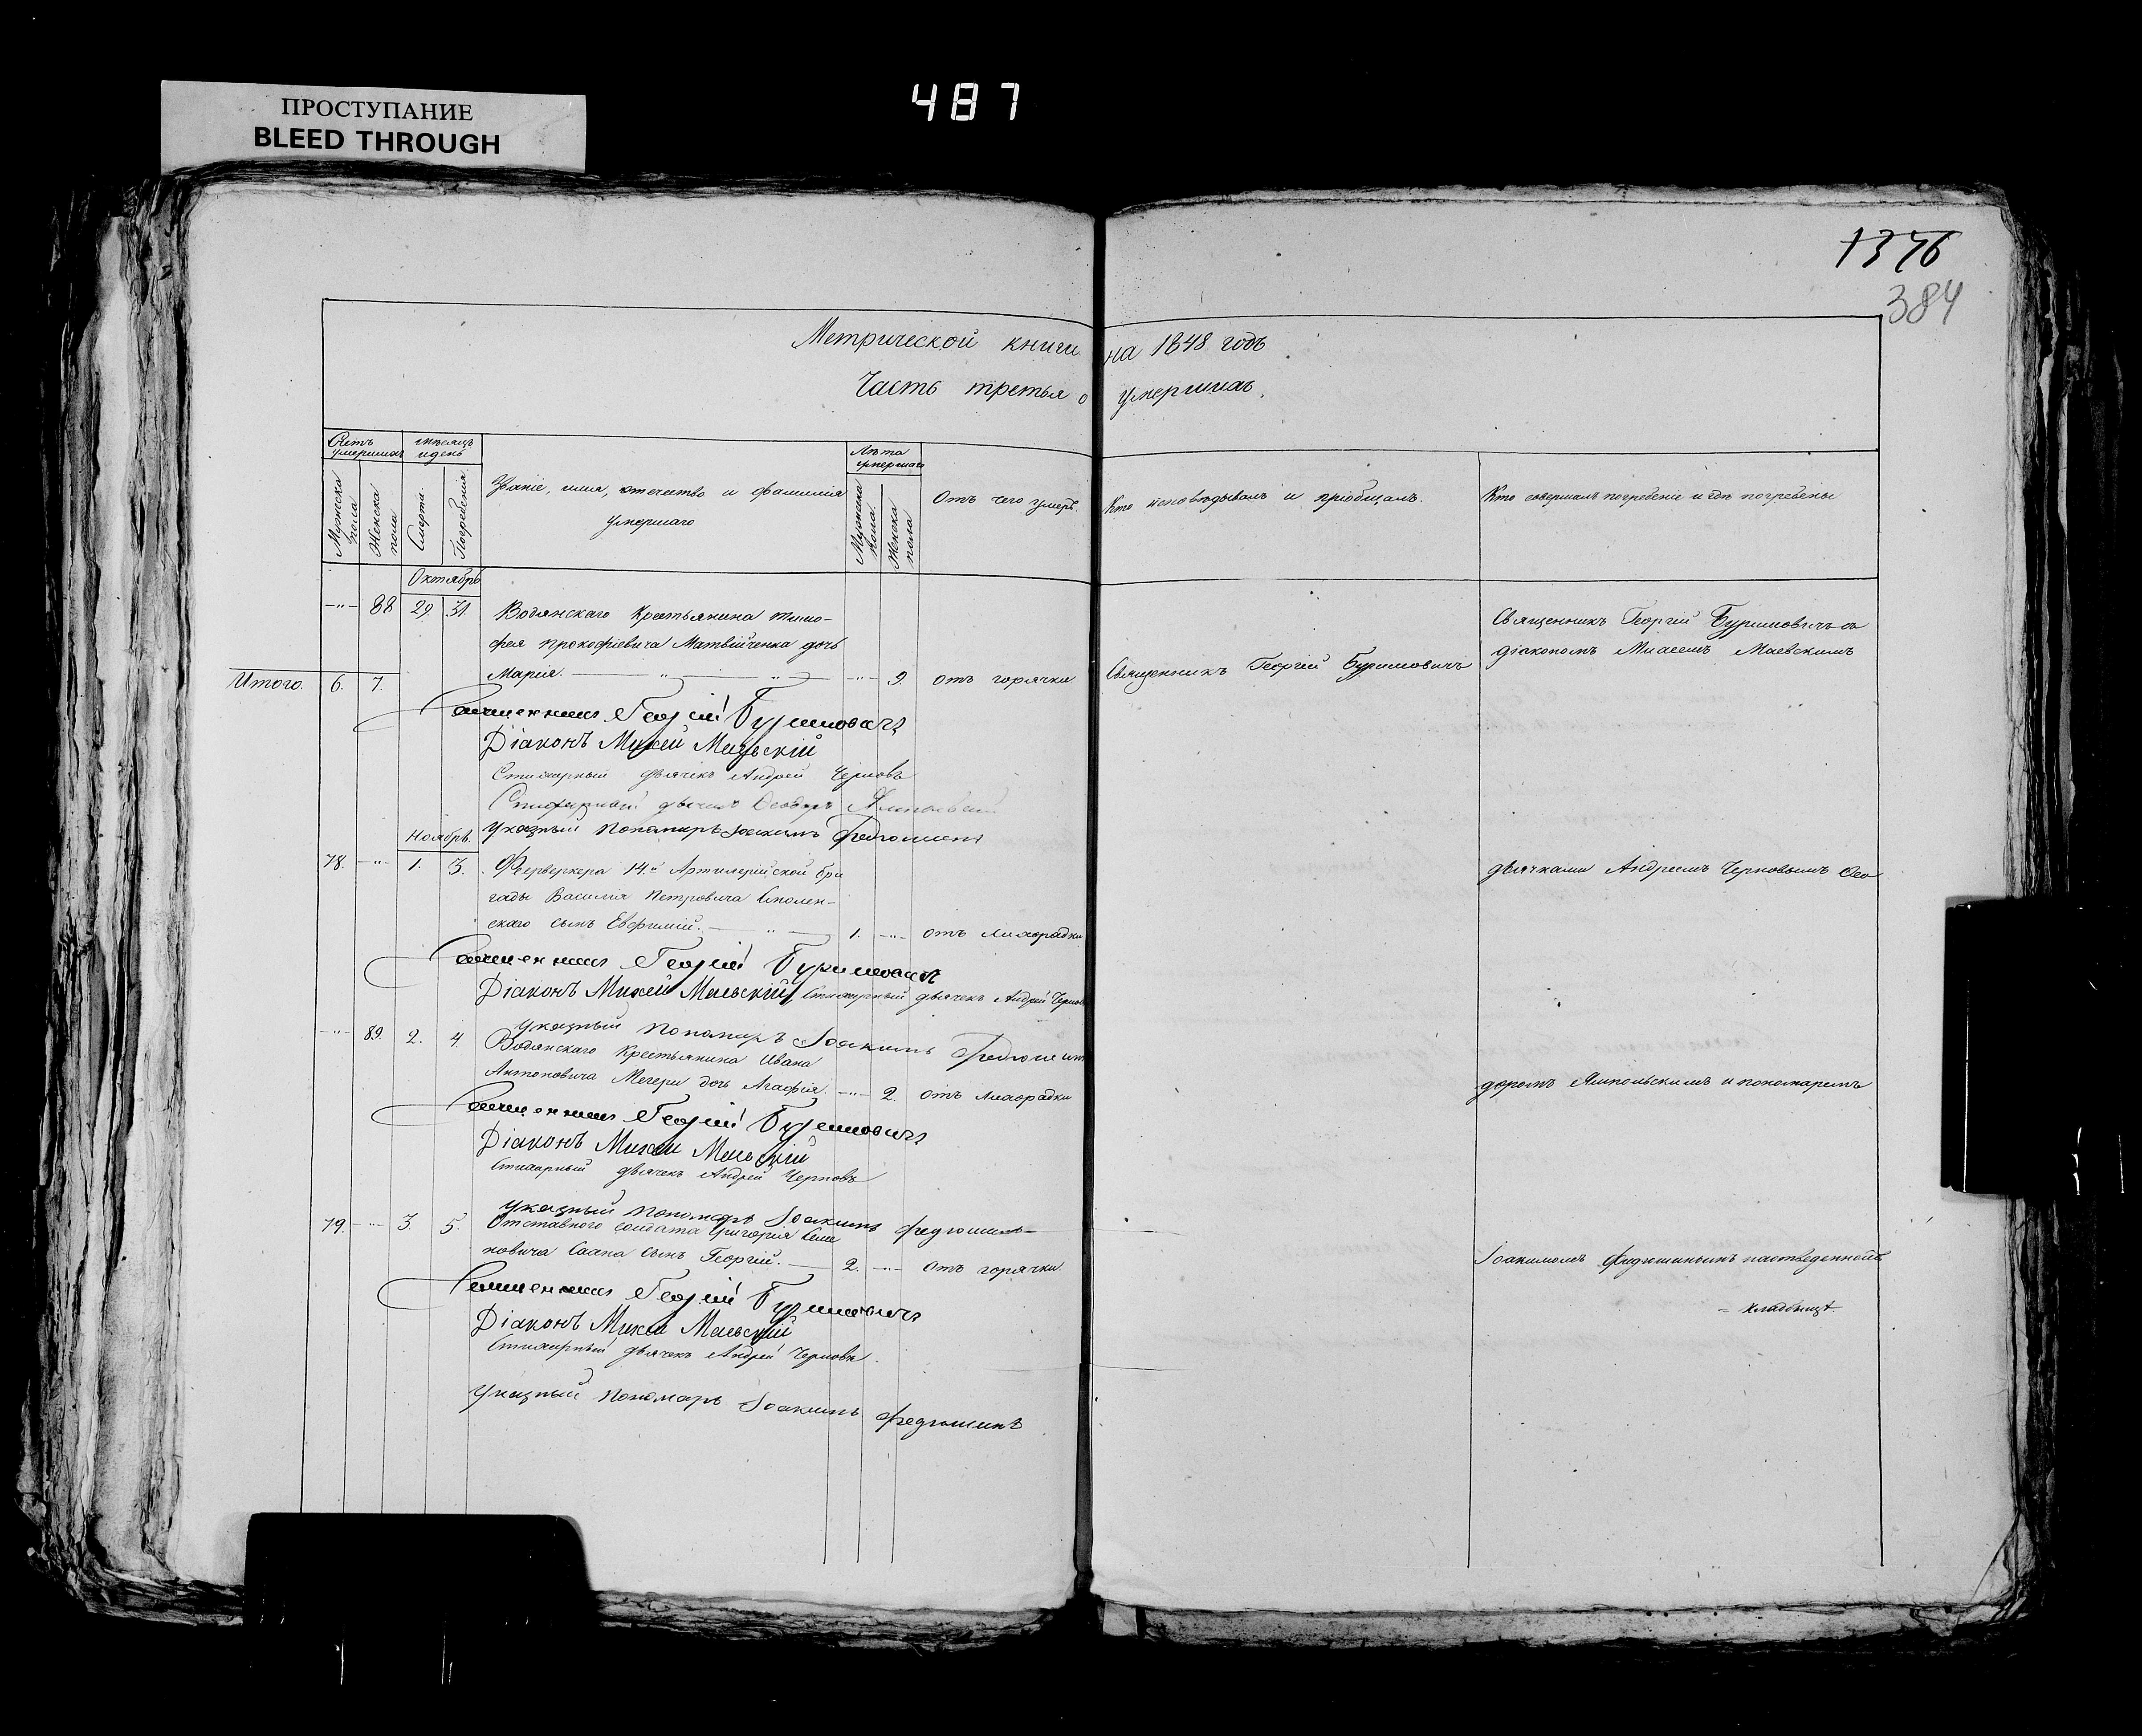 ПРОСТУПАНИЕ
BLEED THROUGH
487
1376
384
Метрической книги на 1848 годъ
Часть третья о умершихъ.
Счетъ умершихъ
Мужеска пола
Женска пола
мѣсяцъ и день
Смерти.
Погребенія.
Званіе, имя, отечество и фамилія
умершаго
Лѣта умершаго
Мужеска пола.
Женска пола
Отъ чего умеръ.
Кто исповѣдывалъ и пріобщалъ.
Кто совершалъ погребеніе и гдѣ погребены
Октябрь
-"- 88 29. 31. Водянскаго Крестьянина Тимо-
фея Прокофіевича Матвѣйченка дочь
Марія. -"- 9. отъ горячки
Священникъ Георгій Буримовичъ
Священникъ Георгій Буримовичъ съ
діакономъ Михеемъ Маевскимъ
Итого. 6. 7.
Священникъ Георгій Буримовичъ
Діаконъ Михей Маевскій
Стихарный дьячекъ Андрей Черновъ
Стихарный дьячекъ Ѳеодоръ Ямпольскій
Указный Пономарь Іоакимъ Федюшинъ
Ноябрь.
78. -"- 1. 3. Фейерверкера 14.й Артилерійской бри
гады Василія Петровича Смолен-
скаго сынъ Евфимій. 1. -"- отъ лихорадки
дьячками Андреемъ Черновымъ Ѳео
Священникъ Георгій Буримовичъ
Діаконъ Михей Маевскій Стихарный дьячекъ Андрей Черновъ
Указный Пономарь Іоакимъ Федюшинъ
-"- 89. 2. 4. Водянскаго Крестьянина Ивана
Антоновича Мечери дочь Агафія. -"- 2. отъ лихорадки
доромъ Ямпольскимъ и пономаремъ
Священникъ Георгій Буримовичъ
Діаконъ Михей Маевскій
Стихарный дьячекъ Андрей Черновъ
Указный Пономарь Іоакимъ Федюшинъ
79. -"- 3. 5. Отставного солдата Григорія Семе
новича Саапа сынъ Георгій. 2. -"- отъ горячки.
Іоакимомъ Федюшинымъ на отведенномъ
= кладбищѣ
Священникъ Георгій Буримовичъ
Діаконъ Михей Маевскій
Стихарный дьячекъ Андрей Черновъ.
Указный Пономарь Іоакимъ Федюшинъ